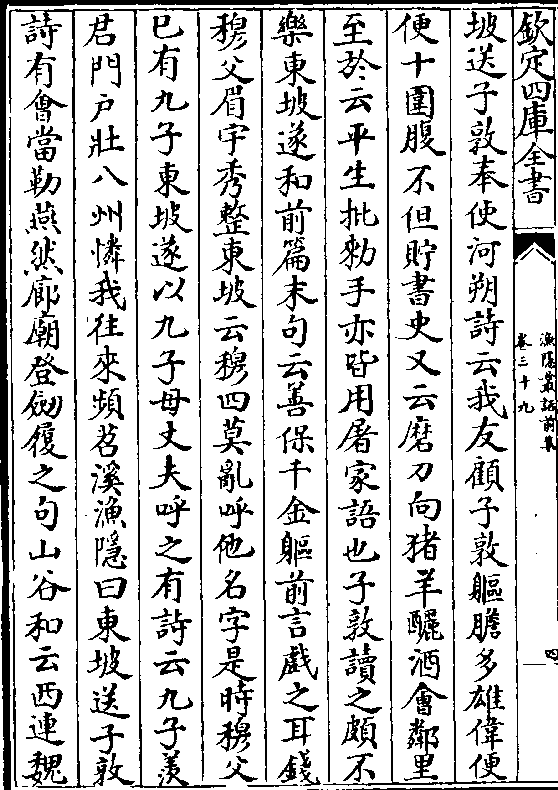 欽定四庫全書
漁隱叢話前集
卷三十九
四
坡送子敦奉使河朔詩云我友顧子敦軀膽多雄偉便
便十圍腹不但貯書史又云磨刀向猪羊釃酒會鄰里
至於云平生批勅手亦皆用屠家語也子敦讀之頗不
樂東坡遂和前篇末句云善保千金軀前言戲之耳錢
穆父眉宇秀整東坡云穆四莫亂呼他名字是時穆父
已有九子東坡遂以九子母丈夫呼之有詩云九子羨
君門户壯八州憐我往來頻苕溪漁隱曰東坡送子敦
詩有會當勒燕然廊廟登劒履之句山谷和云西連魏